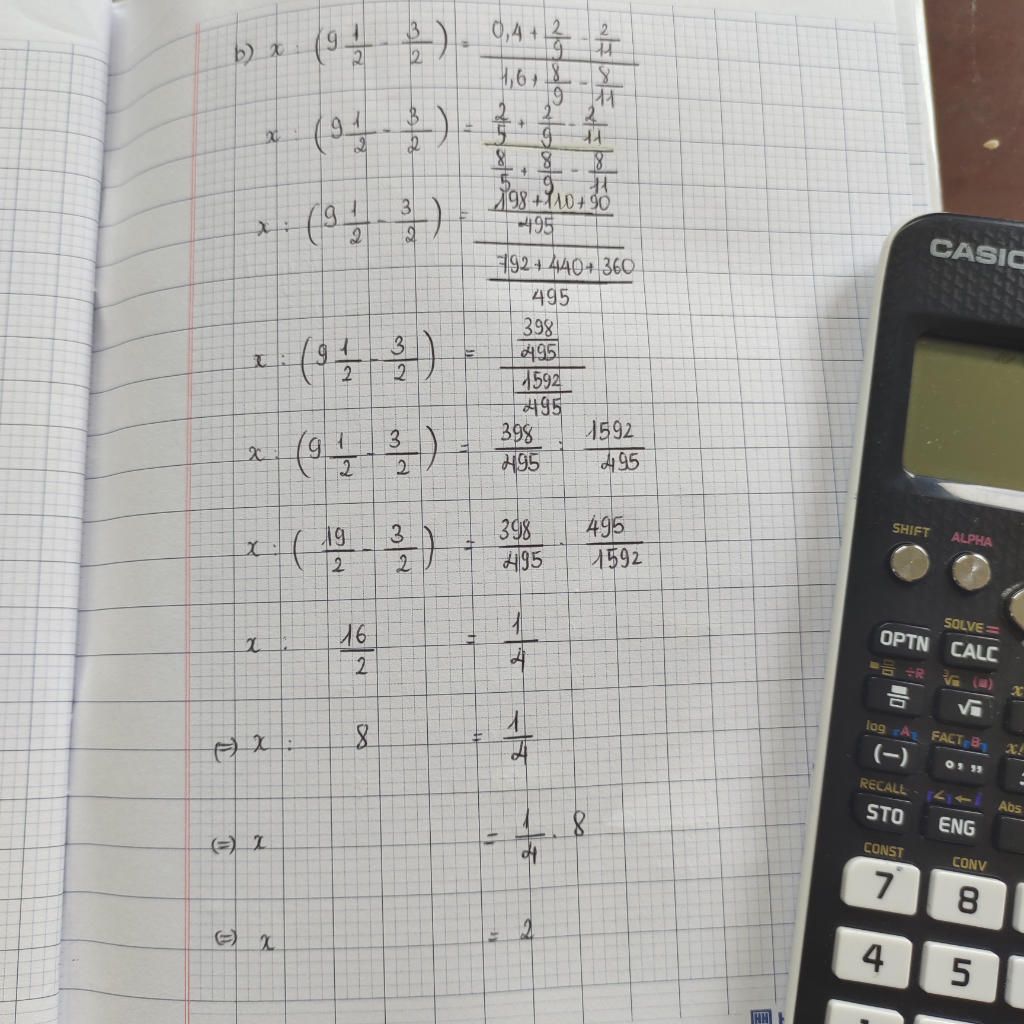 b) x : (9 1/2 - 3/2) = (0,4 + 2/9 - 2/11) / (1,6 + 8/9 - 8/11)
x : (9 1/2 - 3/2) = (2/5 + 2/9 - 2/11) / (8/5 + 8/9 - 8/11)
x : (9 1/2 - 3/2) = ((198 + 110 + 90)/495) / ((792 + 440 + 360)/495)
x : (9 1/2 - 3/2) = (398/495) / (1592/495)
x : (9 1/2 - 3/2) = 398/495 : 1592/495
x : (19/2 - 3/2) = 398/495 . 495/1592
x : 16/2 = 1/4
(=) x : 8 = 1/4
(=) x = 1/4 . 8
(=) x = 2
CASIO
SHIFT ALPHA
SOLVE =
OPTN CALC
÷R
log A FACT B x!
(–) ° ’ ”
RECALL Abs
STO ENG
CONST CONV
7 8
4 5